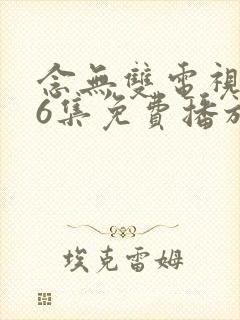 念無雙電視
6集免費播放
埃克雷姆